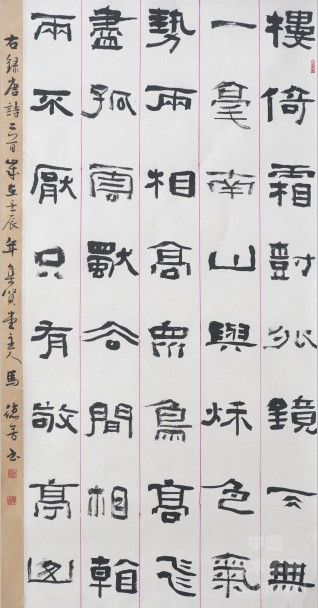 樓倚霜樹外鏡天無
一毫南山與秋色氣
勢兩相高眾鳥高飛
盡孤雲獨去間相看
兩不厭只有敬亭山
右錄唐詩二首歲在壬辰年集賢堂主人馬德芳書